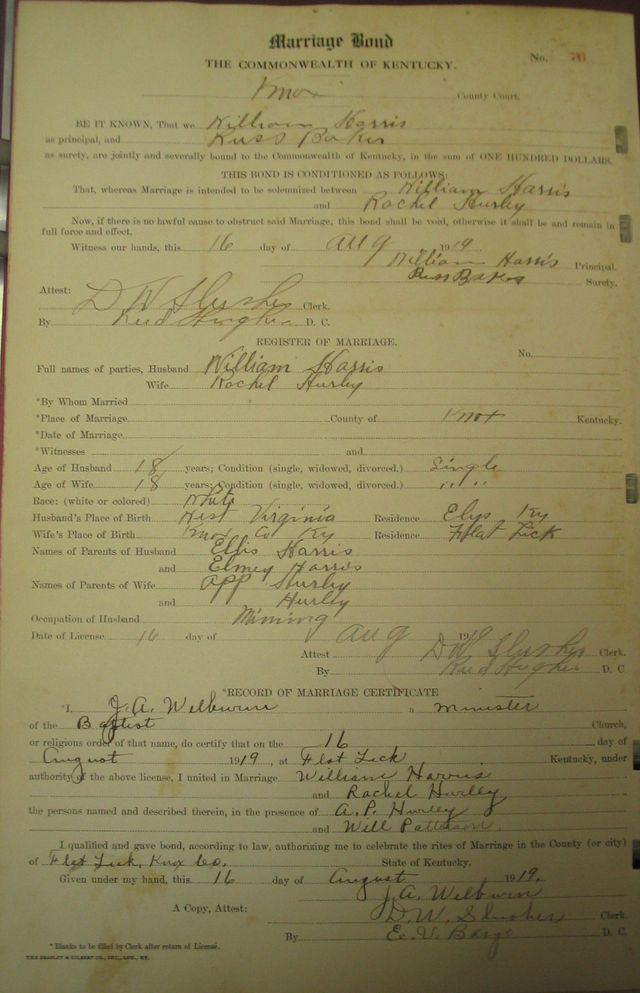 Marriage Bond
No. 76
THE COMMONWEALTH OF KENTUCKY.
Knox County Court.
BE IT KNOWN, That we William Harris
as principal, and Russ Baker
as surety, are jointly and severally bound to the Commonwealth of Kentucky, in the sum of ONE HUNDRED DOLLARS.
THIS BOND IS CONDITIONED AS FOLLOWS:
That, whereas Marriage is intended to be solemnized between William Harris
and Rachel Hurley
Now, if there is no lawful cause to obstruct said Marriage, this bond shall be void, otherwise it shall be and remain in
full force and effect.
Witness our hands, this 16 day of Aug, 1919.
William Harris Principal.
Russ Baker Surety.
Attest:
D W Slusher Clerk.
By Reed Hughes D. C.
REGISTER OF MARRIAGE.
No.
Full names of parties, Husband William Harris
Wife Rachel Hurley
*By Whom Married
*Place of Marriage County of Knox Kentucky.
*Date of Marriage
*Witnesses and
Age of Husband 18 years; Condition (single, widowed, divorced.) Single
Age of Wife 18 years; Condition (single, widowed, divorced.) " "
Race: (white or colored) White
Husband's Place of Birth West Virginia Residence Elys Ky
Wife's Place of Birth Knox Co Ky Residence Flat Lick
Names of Parents of Husband Ellis Harris
and Elmey Harris
Names of Parents of Wife App Hurley
and Hurley
Occupation of Husband Mining
Date of License 16 day of Aug 1919
Attest D W Slusher Clerk.
By Reed Hughes D. C
*RECORD OF MARRIAGE CERTIFICATE
*I, J. A. Wilburn a minister
of the Baptist Church,
or religious order of that name, do certify that on the 16 day of
August 1919, at Flat Lick Kentucky, under
authority of the above license, I united in Marriage William Harris
and Rachel Hurley
the persons named and described therein, in the presence of A. P. Hurley
and Will Patterson
I qualified and gave bond, according to law, authorizing me to celebrate the rites of Marriage in the County (or city)
of Flat Lick, Knox Co. State of Kentucky.
Given under my hand, this 16 day of August 1919.
J. A. Wilburn
A Copy, Attest: D. W. Slusher Clerk.
By E. V. Bargo D. C.
*Blanks to be filled by Clerk after return of License.
THE BRADLEY & GILBERT CO., INC., LOU., KY.